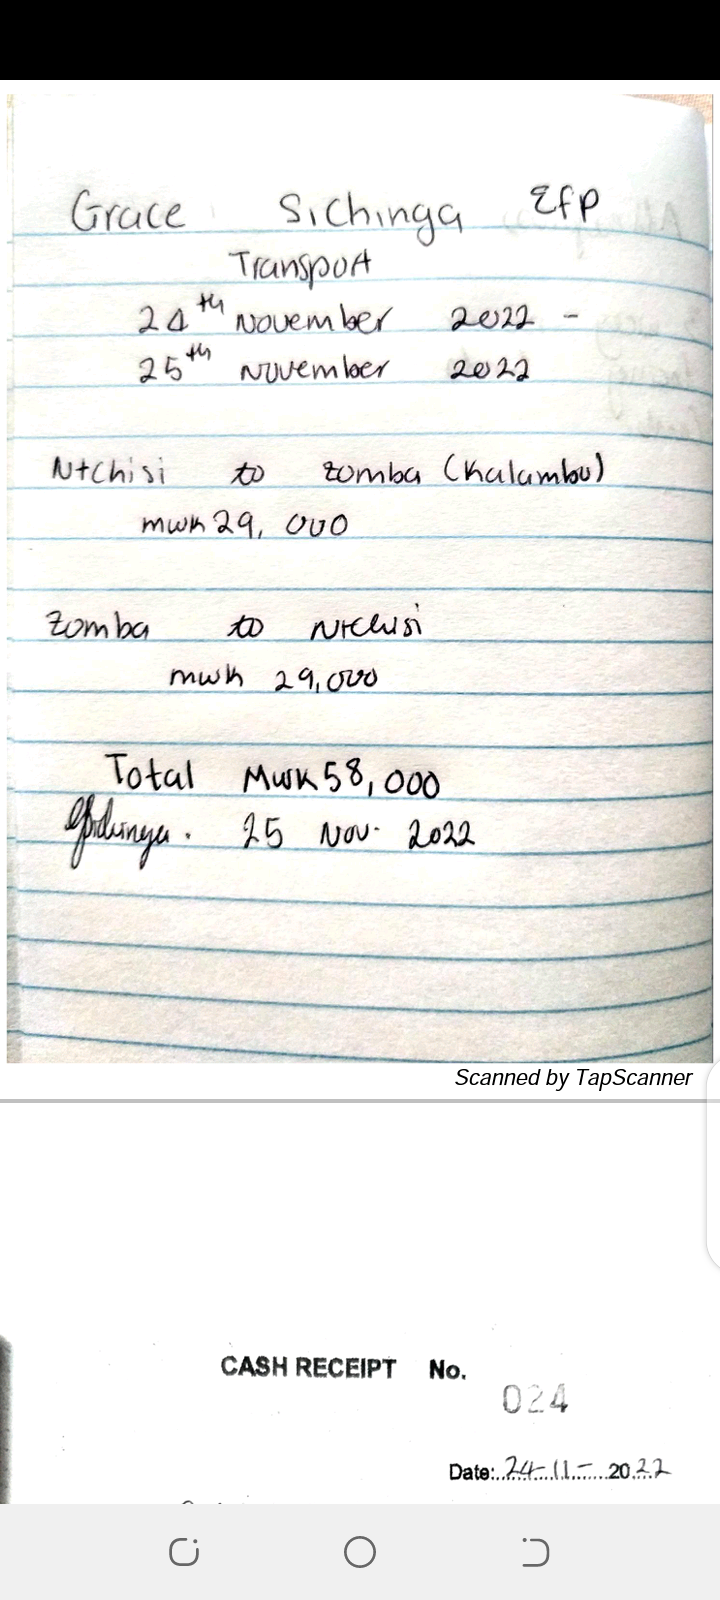 Grace Sichinga EfP
Transport
24th November 2022 -
25th November 2022
Ntchisi to zomba (Kalambu)
mwk 29, 000
Zomba to Ntchisi
mwk 29,000
Total Mwk 58,000
25 Nov. 2022
Scanned by TapScanner
CASH RECEIPT No.
024
Date: 24-11- 2022